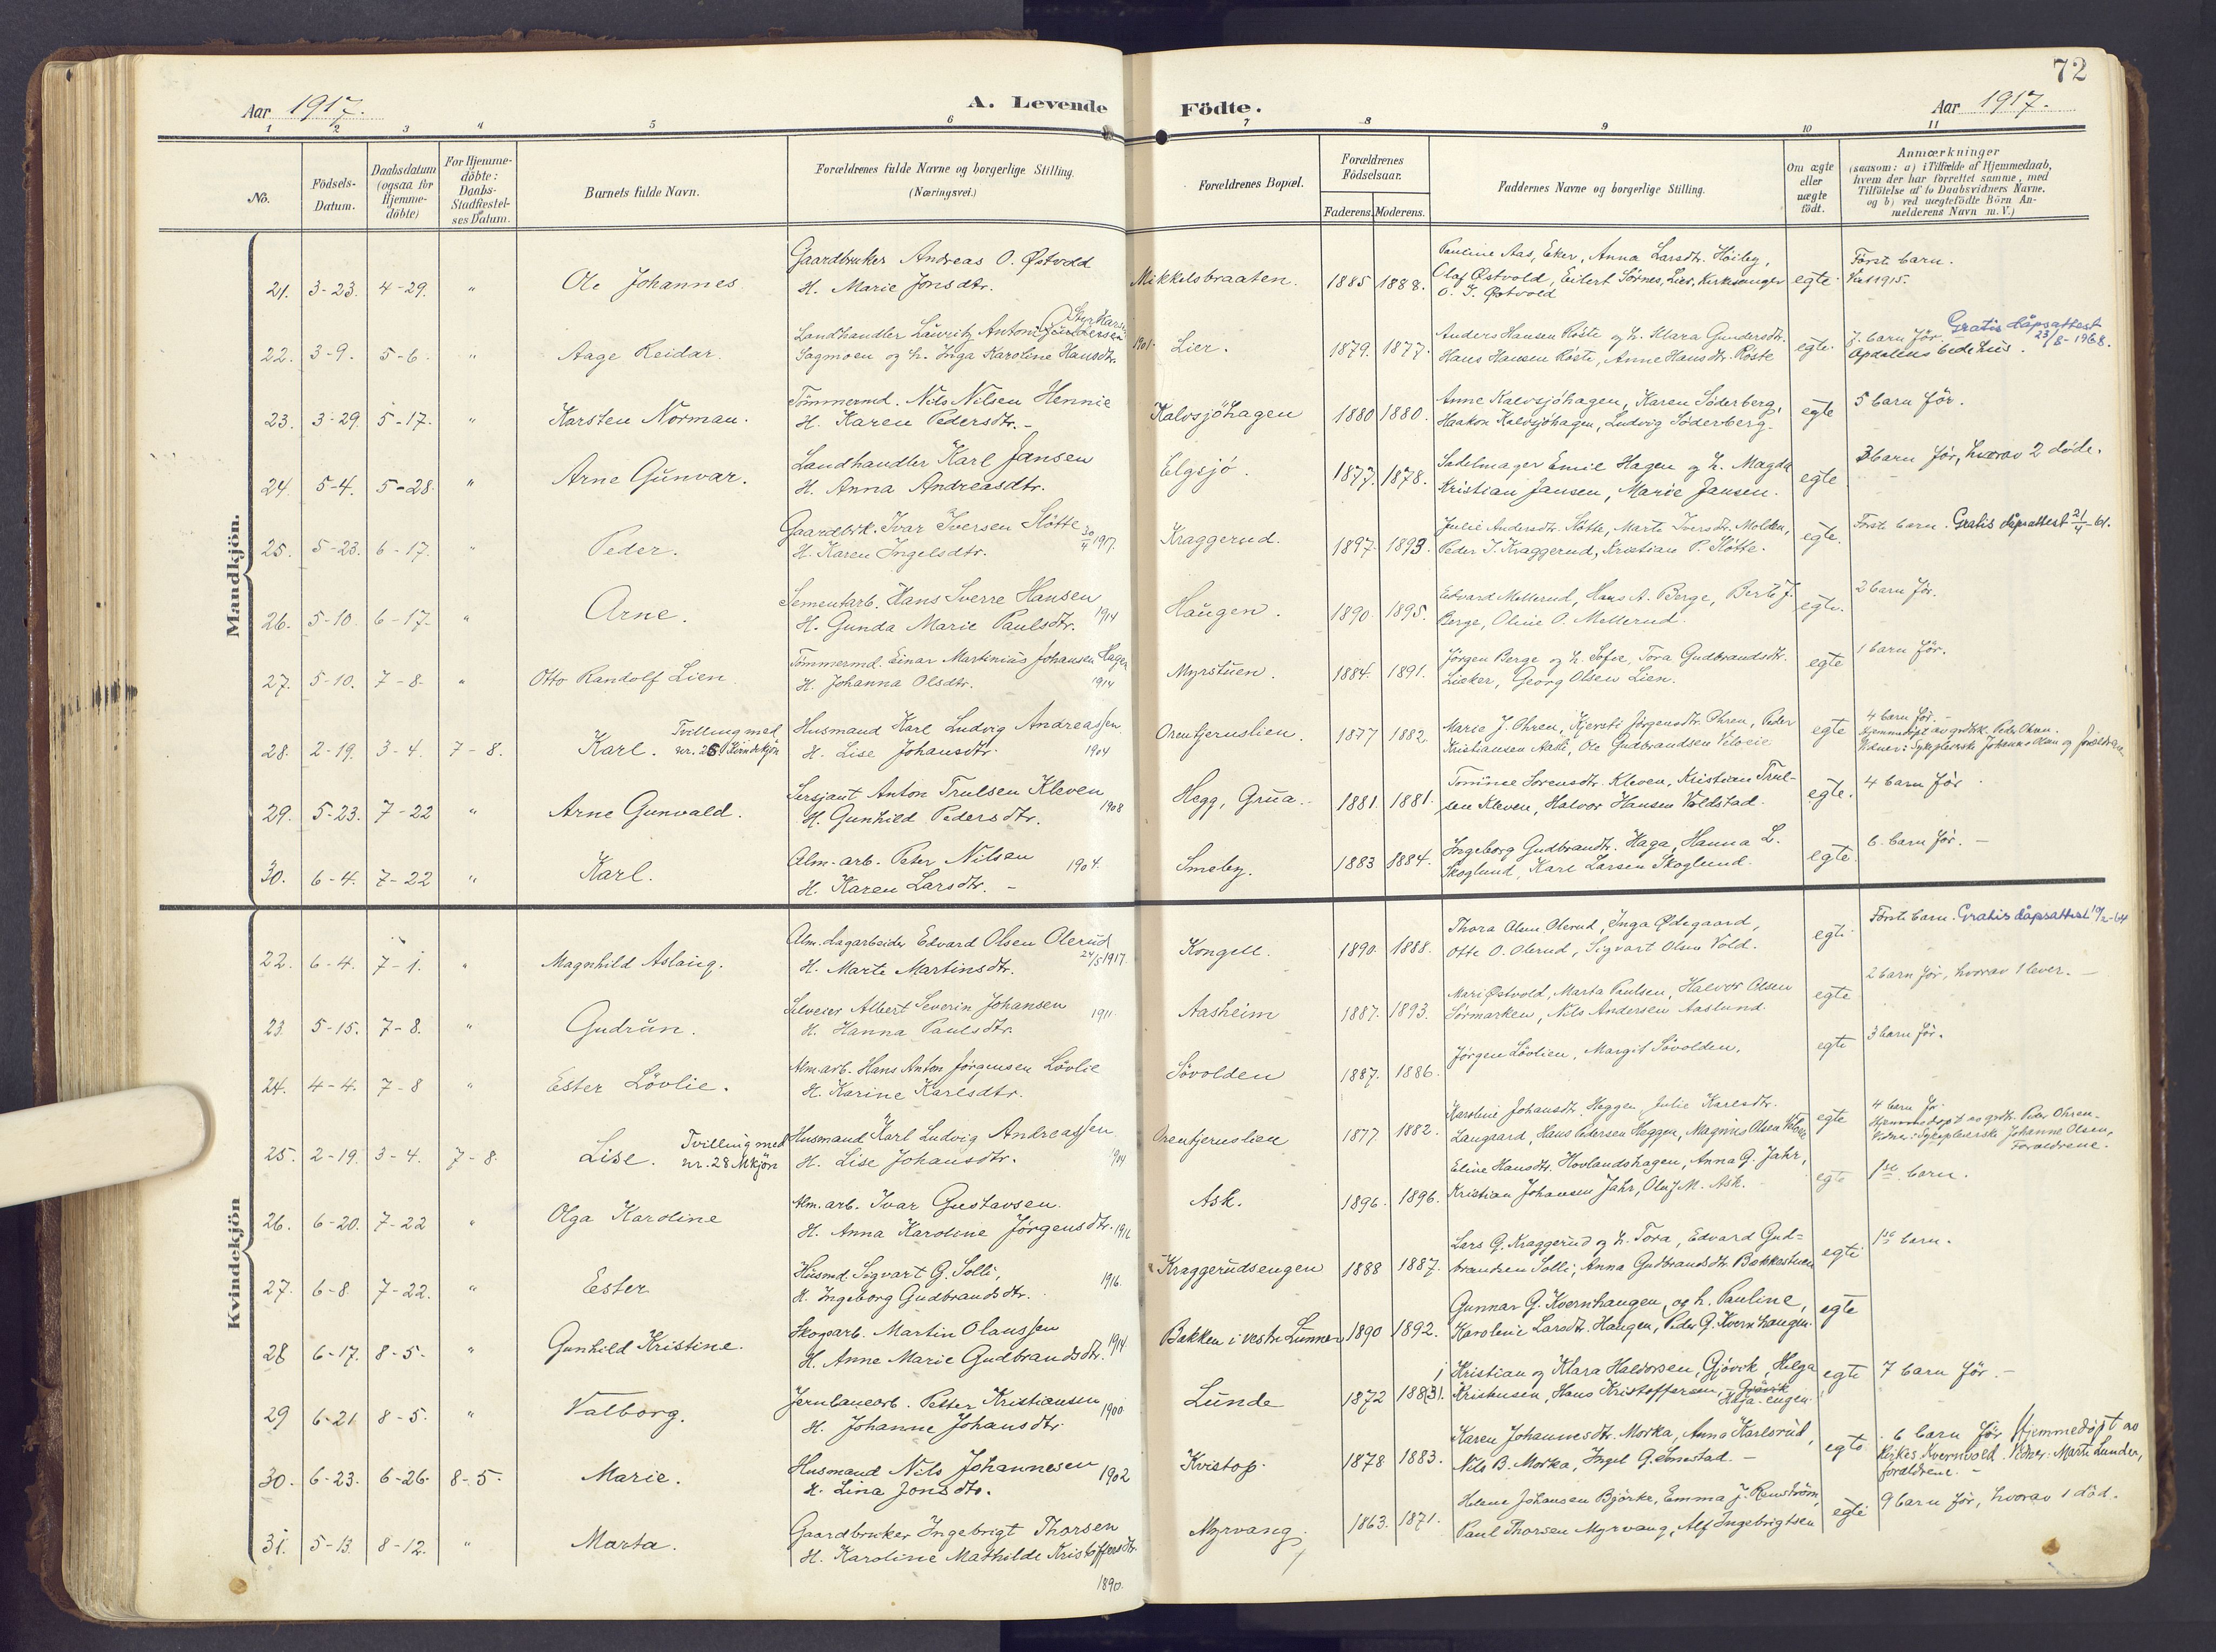 72
Aar 1917.
A. Levende Födte.
Aar 1917.
1 2 3 4 5 6 7 8 9 10 11
No.
Födsels-
Datum.
Daabsdatum
(ogsaa for
Hjemme-
döbte)
For Hjemme-
döbte:
Daabs-
Stadfæstel-
ses Datum.
Barnets fulde Navn.
Forældrenes fulde Navne og borgerlige Stilling.
(Næringsvei.)
Forældrenes Bopæl.
Forældrenes
Födselsaar.
Faderens. Moderens.
Faddernes Navne og borgerlige Stilling.
Om ægte
eller
uægte
födt.
Anmærkninger
(saasom: a) i Tilfælde af Hjemmedaab,
hvem der har forrettet samme, med
Tilföielse af to Daabsvidners Navne.
og b) ved uægtefödte Börn An-
melderens Navn m. V.)
Mandkjön.
21. 3-23. 4-29. " Ole Johannes
Gaardbruker Andreas O. Østvold
H. Marie Jonsdtr.
Mikkelsbraaten. 1885 1888.
Pauline Aas, Eker, Anna Larsdtr. Höiby,
Olaf Østvold, Eilert Sörnes, Lier, Kirkesanger
O. J. Østvold
egte
Först barn.
Viet 1915.
22. 3-9. 5-6. " Aage Reidar.
Landhandler Lauritz Antoni
Sagmoen og h. Inga Karoline Hansdtr.
1901. Lier. 1879. 1877.
Anders Hansen Röste og h. Klara Gundersdtr.
Hans Hansen Röste, Anne Hansdtr. Röste
egte.
7. barn för. Gratis dåpsattest
23/8-1968.
Opdalens bedehus.
23. 3-29. 5-17. " Karsten Norman.
Tömmermd. Nils Nilsen Hennie
H. Karen Pedersdtr. -
Kalvsjöhagen 1880 1880.
Anne Kalvsjöhagen, Karen Söderberg,
Haakon Kalvsjöhagen, Ludvig Söderberg.
egte
5 barn för.
24. 5-4. 5-28. " Arne Gunvar.
Landhandler Karl Jansen
H. Anna Andreasdtr.
Elgsjö. 1877. 1878.
Sadelmager Emil Hagen og h. Magda
Kristian Jansen, Marie Jansen.
egte
3 barn för, hvorav 2 döde.
25. 5-23. 6-17. " Peder.
Gaardbrk. Ivar Iversen Slötte 30/4 1917.
H. Karen Ingelsdtr.
Kraggerud. 1897. 1893.
Julie Andersdtr. Slötte, Marte Iversdtr. Molden,
Peder I. Kraggerud, Kristian P. Slötte.
egte.
Först barn. Gratis dåpsattest 21/4-61.
26. 5-10. 6-17. " Arne.
Sementarb. Hans Sverre Hansen
H. Gunda Marie Paulsdtr. 1914
Haugen. 1890. 1895.
Edvard Mellerud, Hans A. Berge, Berte J.
Berge, Oline O. Mellerud.
egte.
2 barn för.
27. 5-10. 7-8. " Otto Randolf Lien
Tömmermd. Einar Martinius Johansen Hagen
H. Johanna Olsdtr. 1914
Myrstuen. 1884. 1891.
Jörgen Berge og h. Sofie, Tora Gudbrandsdtr.
Lieker, Georg Olsen Lien.
egte
1 barn för.
28. 2-19. 3-4. 7-8. Karl. Tvilling med
nr. 25 Kvindekjön
Husmand Karl Ludvig Andreassen
H. Lise Johansdtr. 1904
Orentjernslien. 1877 1882.
Marie J. Ohren, Kjersti Jörgensdtr. Ohren, Peder
Kristiansen Aasli, Ole Gudbrandsen Velocie
egte
4 barn för. -
Hjemmedöpt av grdbk. Peder Ohren.
Vidner: Sykepleierske Johanne Olsen og forældrene
29. 5-23. 7-22 " Arne Gunvald.
Sersjant Anton Trulsen Kleven
H. Gunhild Pedersdtr. 1908
Hegg, Grua. 1881. 1881.
Tomine Sorensdtr. Kleven, Kristian Trul-
sen Kleven, Halvor Hansen Voldstad.
egte.
4 barn för
30. 6-4. 7-22 " Karl.
Alm. arb. Peter Nilsen 1904.
H. Karen Larsdtr. -
Smeby. 1883 1884.
Ingeborg Gudbrandtr. Haga, Hanna L.
Skoglund, Karl Larsen Skoglund.
egte.
6. barn för. -
Kvindekjön
22. 6-4. 7-1. " Magnhild Aslaug.
Alm. dagarbeider Edvard Olsen Olerud
H. Marte Martinsdtr. 24/5 1917.
Kongell. 1890. 1888.
Thora Olsen Olerud, Inga Ødegaard,
Otto O. Olerud, Sigvart Olsen Vold.
egte
Först barn. Gratis dåpsattest 10/2-64
23. 5-15. 7-8. " Gudrun.
Albert Severin Johansen 1911.
H. Hanna Paulsdtr.
Aasheim 1887. 1893.
Mari Østvold, Marta Paulsen, Halvor Olsen
Sörmarken, Nils Andersen Aaslund.
egte
2 barn för, hvorav 1 lever. -
24. 4-4. 7-8 " Ester Lövlie.
Alm. arb. Hans Anton Jörgensen Lövlie
H. Karine Karlsdtr.
Sövolden 1887. 1886.
Jörgen Lövlien, Margit Sövolden.
egte
3 barn för.
25. 2-19. 3-4. 7-8. Lise. Tvilling med
nr. 28 Mkjön
Husmand Karl Ludvig Andreassen
H. Lise Johansdtr. 1904
Orentjernslien 1877. 1882.
Karoline Johansdtr. Heggen, Julie Karlsdtr.
Langaard, Hans Pedersen Heggen, Magnus Olsen
egte
4 barn för.
Hjemmedöpt av grdbr. Peder Ohren.
Vidner: Sykepleierske Johanne Olsen,
Forældrene.
26. 6-20. 7-22 " Olga Karoline
Alm. arb. Ivar Gustavsen.
H. Anna Karoline Jörgensdtr. 1916
Ask. 1896. 1896.
Eline Hansdtr. Hovlandshagen, Anna G. Jahr,
Kristian Johansen Jahr, Oluf M. Ask. -
egte
1ste barn.
27. 6-8. 7-22. " Ester
Husmd Sigvart G. Solli, 1916.
H. Ingeborg Gudbrandsdtr.
Kraggerudsengen 1888 1887.
Lars G. Kraggerud og h. Tora, Edvard Gud=
brandsen Solli, Anna Gudbrandsdtr. Bakkestuen
egte
1ste barn.
28 6-17. 8-5. " Gunhild Kristine.
Skogsarb. Martin Olaussen
H. Anne Marie Gudbrandsdtr. 1914
Bakken i vestre Lunner 1890 1892.
Gunnar G. Kvernhaugen, og h. Pauline,
Karoline Larsdtr. Haugen, Peder G. Kvernhaugen.
egte
29 6-21 8-5. " Valborg.
Jernbanearb. Petter Kristiansen 1900
H. Johanne Johansdtr.
Lunde 1872
Kristian og Klara Haldorsen, Gjövik, Helga
Kristiansen, Hans Kristoffersen,
Haga-engen
egte
7 barn för. -
30. 6-23. 6-26. 8-5. Marie.
Husmand Nils Johannesen 1902
H. Lina Jonsdtr.
Kvistop. 1878 1883.
Karen Johannesdtr. Morka, Anna Karlsrud,
Nils B. Morka, Ingel G. Elmstad. -
egte
6 barn för. Hjemmedöpt av
Kvernvold. Vidner: Marte Lunder,
forældrene. -
31. 5-13. 8-12. " Marta.
Gaardbruker Ingebrigt Thorsen
H. Karoline Mathilde Kristoffersdtr.
1890.
Myrvang. 1863. 1871.
Helene Johansen Björke, Emma J. Renström,
Paul Thorsen Myrvang, Alf Ingebrigtsen
egte
9 barn för, hvorav 1 död.